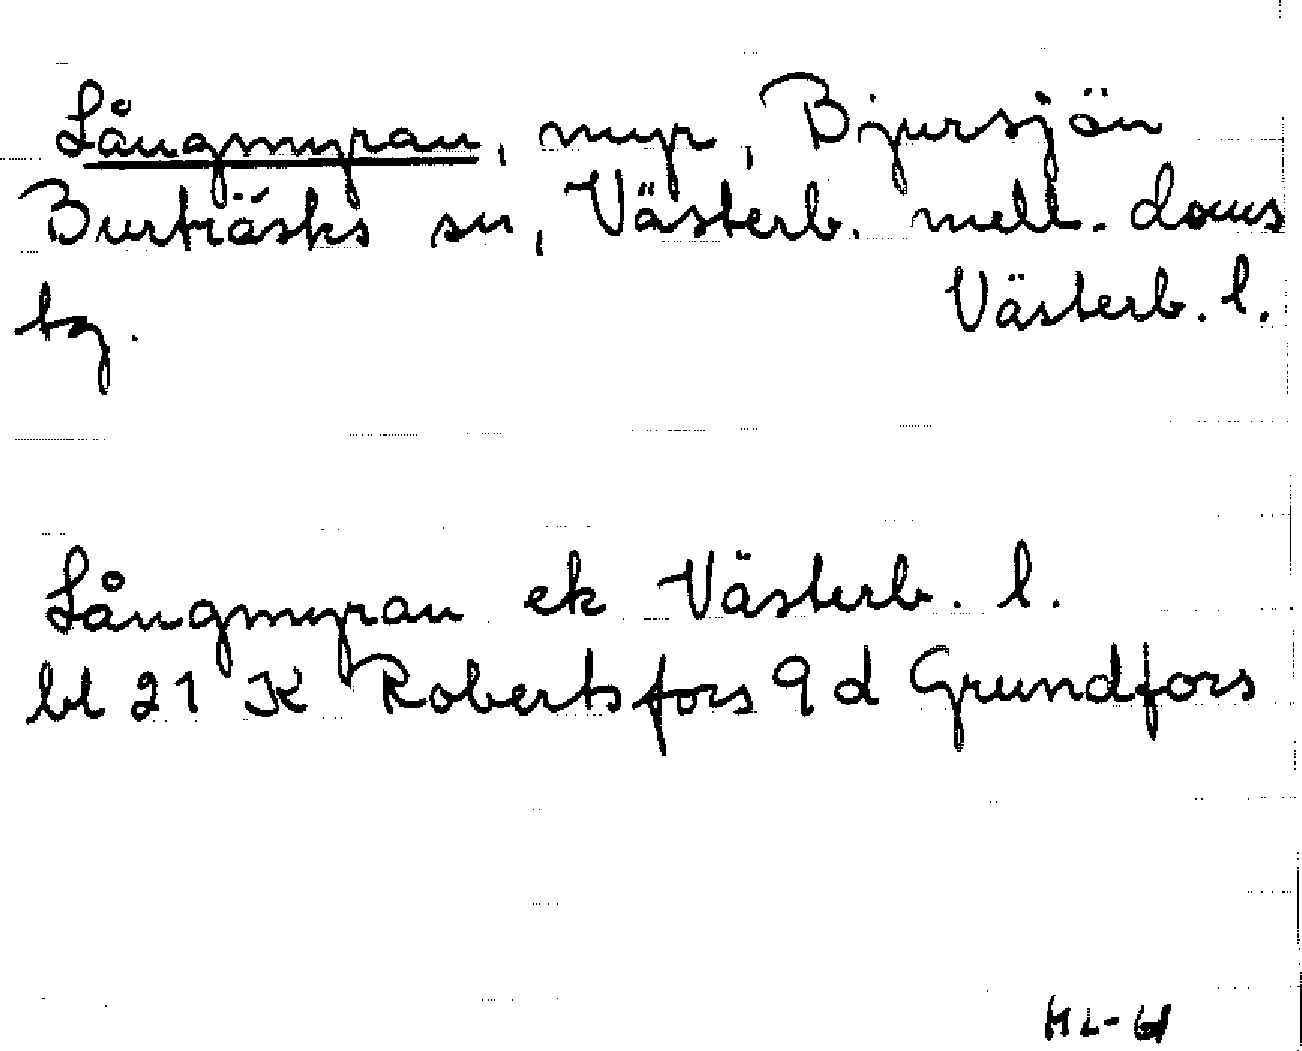 Långmyran, myr, Bjursjön
Burträsks sn, Västerb. mell. doms
tg. Västerb. l.
Långmyran ek Västerb. l.
bl 21 K Robertsfors 9 d Grundfors
HL-61